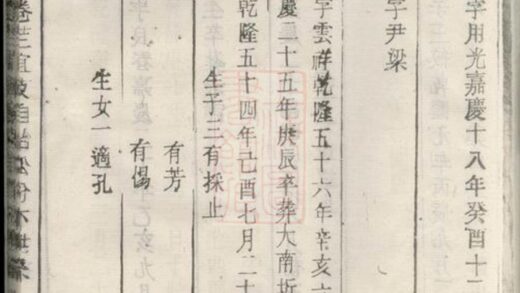 字用光嘉慶十八年癸酉十
字尹梁
字雲祥乾隆五十六年辛亥
慶二十五年庚辰卒葬大南坵
乾隆五十四年己酉七月二十
生子三有採止
有芳
有偈
生女一適孔
卷